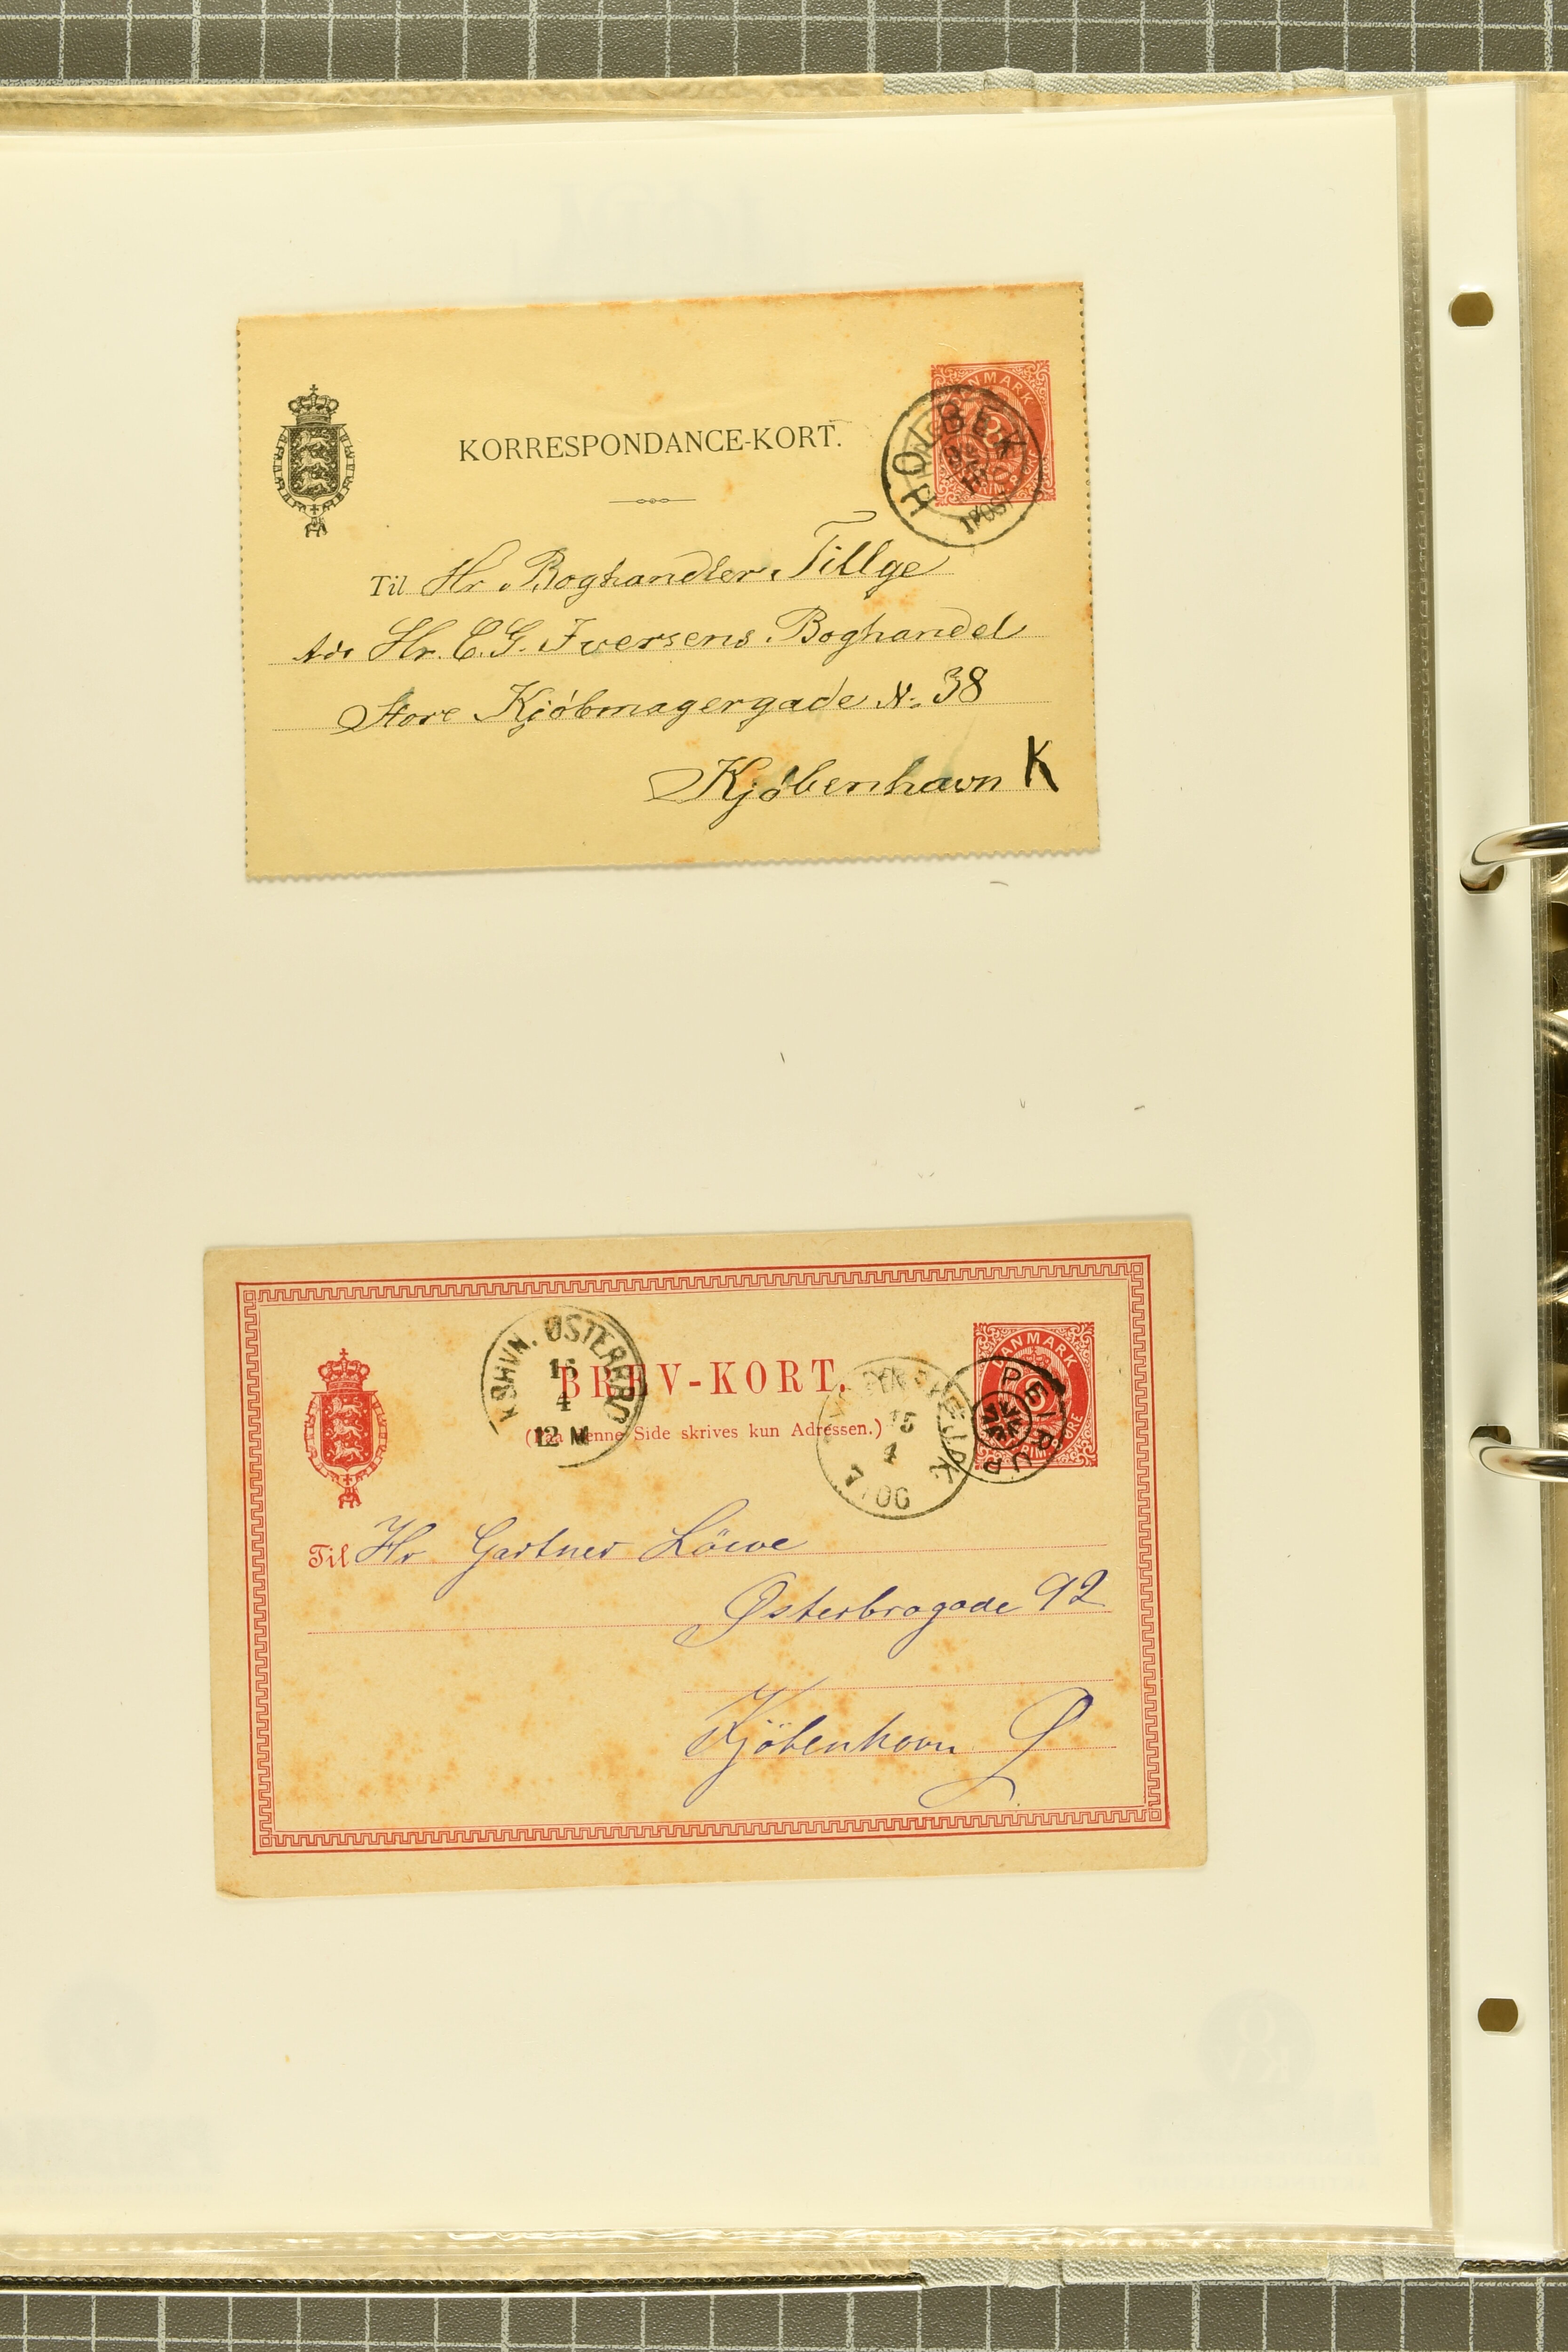 KORRESPONDANCE-KORT.
DANMARK
HOLBEK
1 POST
Til Hr. Boghandler Tillge
Adr Hr. C. G. Iversens Boghandel
Store Kjöbmagergade N: 38
Kjöbenhavn K
KBHVN. ØSTERBRO
15
4
12 M
BREV-KORT.
(Paa denne Side skrives kun Adressen.)
15
4
DANMARK
8
Til Hr Gartner Löwe
Østerbrogade 92
Kjöbenhavn Ø